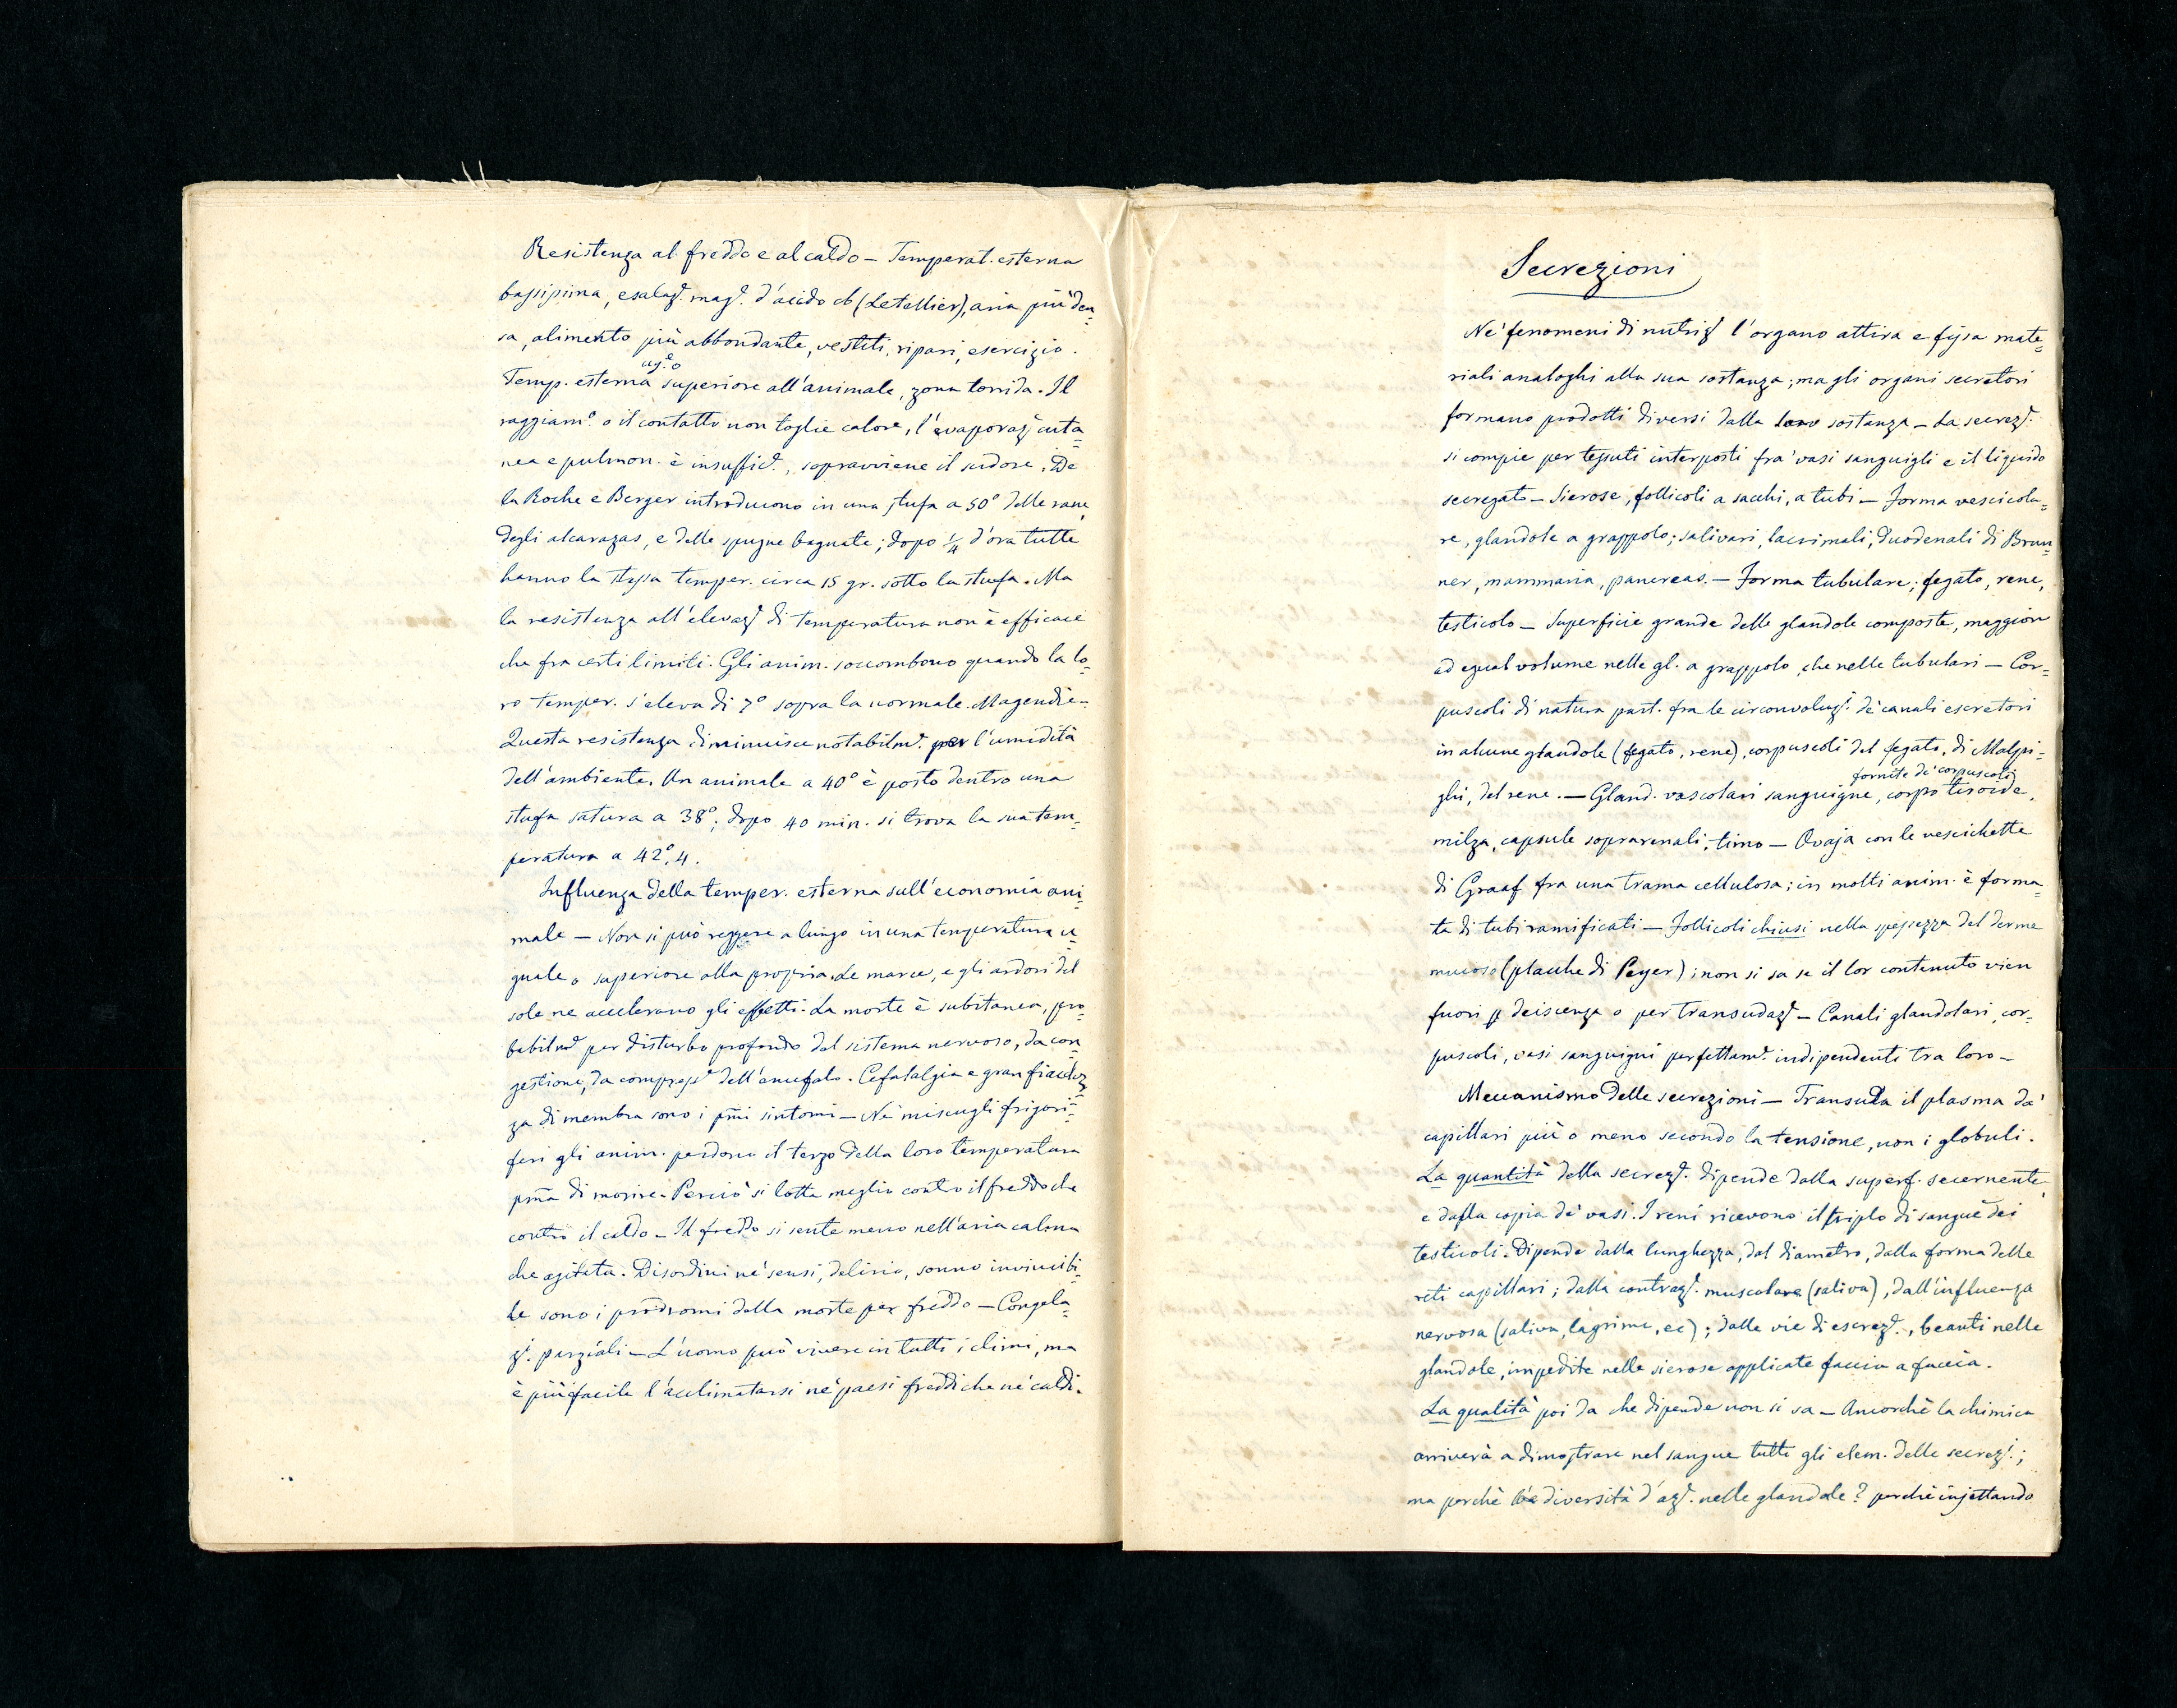 Resistenza al freddo e al caldo — Temperat. esterna
bassissima, esalaz.e mag.e d'acido cb (Letellier), aria più den=
sa, alimento più abbondante, vestiti, ripari, esercizio.
ug.e o
Temp. esterna superiore all'animale, zona torrida. Il
raggiam.o o il contatto non toglie calore, l'evaporaz.e cuta=
nea e pulmon. è insuffic.e, sopravviene il sudore. De
la Roche e Berger introducono in una stufa a 50° delle rane,
degli alcarazas, e delle spugne bagnate; dopo 1/4 d'ora tutte
hanno la stessa temper. circa 15 gr. sotto la stufa. Ma
la resistenza all'elevaz.e di temperatura non è efficace
che fra certi limiti. Gli anim. soccombono quando la lo=
ro temper. s'eleva di 7° sopra la normale. Magendie —
Questa resistenza diminuisce notabilm.e per l'umidità
dell'ambiente. Un animale a 40° è posto dentro una
stufa satura a 38°; dopo 40 min. si trova la sua tem=
peratura a 42°,4.
Influenza della temper. esterna sull'economia ani=
male — Non si può reggere a lungo in una temperatura u=
guale o superiore alla propria. Le marce, e gli ardori del
sole ne accelerano gli effetti. La morte è subitanea, pro=
babilm.e per disturbo profondo del sistema nervoso, da con=
gestione, da compress.e dell'encefalo. Cefalalgia e gran fiacchez=
za di membra sono i p̄mi sintomi — Ne' miscugli frigori=
feri gli anim. perdono il terzo della loro temperatura
p̄ma di morire. Perciò si lotta meglio contro il freddo che
contro il caldo — Il freddo si sente meno nell'aria calma
che agitata. Disordini ne' sensi, delirio, sonno invincibi=
le sono i prodromi della morte per freddo — Congela=
z.i parziali — L'uomo può vivere in tutti i climi, ma
è più facile l'acclimatarsi ne' paesi freddi che ne' caldi.
Secrezioni
Ne' fenomeni di nutriz.e l'organo attira e fissa mate=
riali analoghi alla sua sostanza; ma gli organi secretori
formano prodotti diversi dalla loro sostanza — La secrez.e
si compie per tessuti interposti fra' vasi sanguigli e il liquido
secregato — Sierose, follicoli a sacchi, a tubi — Forma vescicola=
re, glandole a grappolo; salivari, lacrimali, duodenali di Brun=
ner, mammaria, pancreas. — Forma tubulare; fegato, rene,
testicolo — Superficie grande delle glandole composte, maggiore
ad egual volume nelle gl. a grappolo, che nelle tubulari — Cor=
puscoli di natura part. fra le circonvoluz.i de' canali escretori
in alcune glandole (fegato, rene), corpuscoli del fegato, di Malpi=
fornite de' corpuscoli
ghi, del rene. — Gland. vascolari sanguigne, corpo tiroide,
milza, capsule soprarenali, timo — Ovaja con le vescichette
di Graaf fra una trama cellulosa; in molti anim. è forma=
ta di tubi ramificati — Follicoli chiusi nella spessezza del derme
mucoso (placche di Peyer); non si sa se il lor contenuto vien
fuori p deiscenza o per transudaz.e — Canali glandolari, cor=
puscoli, vasi sanguigni perfettam.e indipendenti tra loro —
Meccanismo delle secrezioni — Transuda il plasma da'
capillari più o meno secondo la tensione, non i globuli.
La quantità della secrez.e dipende dalla superf. secernente
e dalla copia de' vasi. I reni ricevono il triplo di sangue dei
testicoli. Dipende dalla lunghezza, dal diametro, dalla forma delle
reti capillari; dalla contraz.e muscolare (saliva), dall'influenza
nervosa (saliva, lagrime, ec); dalle vie di escrez.e, beanti nelle
glandole, impedite nelle sierose applicate faccia a faccia.
La qualità poi da che dipende non si sa — Ancorchè la chimica
arriverà a dimostrare nel sangue tutti gli elem. delle secrez.i;
ma perchè la diversità d'az.e nelle glandole? perchè injettando